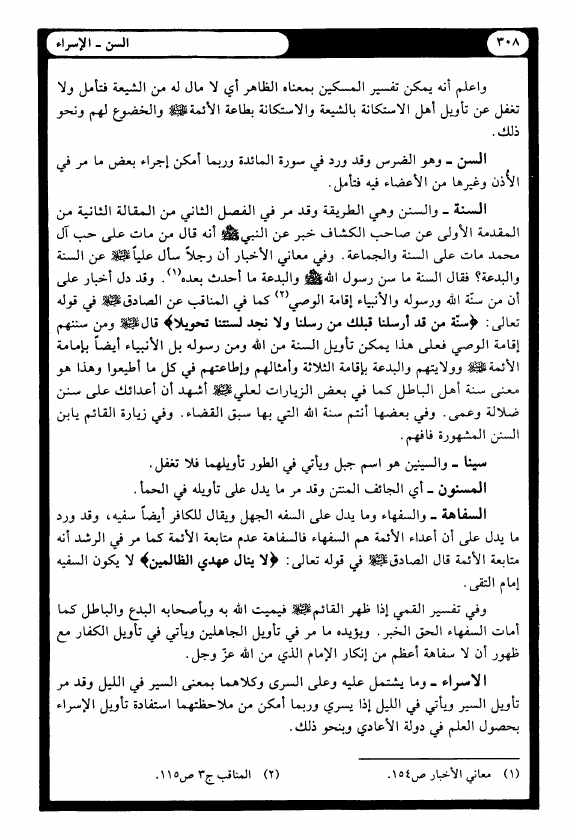 ٣٠٨
السن - الإسراء
واعلم أنه يمكن تفسير المسكين بمعناه الظاهر أي لا مال له من الشيعة فتأمل ولا
تغفل عن تأويل أهل الاستكانة بالشيعة والاستكانة بطاعة الأئمة ﷺ والخضوع لهم ونحو
ذلك.
السن - وهو الضرس وقد ورد في سورة المائدة وربما أمكن إجراء بعض ما مر في
الأُذن وغيرها من الأعضاء فيه فتأمل.
السنة - والسنن وهي الطريقة وقد مر في الفصل الثاني من المقالة الثانية من
المقدمة الأولى عن صاحب الكشاف خبر عن النبي ﷺ أنه قال من مات على حب آل
محمد مات على السنة والجماعة. وفي معاني الأخبار أن رجلاً سأل علياً ﷺ عن السنة
والبدعة؟ فقال السنة ما سن رسول الله ﷺ والبدعة ما أحدث بعده(١). وقد دل أخبار على
أن من سنّة الله ورسوله والأنبياء إقامة الوصي(٢) كما في المناقب عن الصادق ﷺ في قوله
تعالى: ﴿سنّة من قد أرسلنا قبلك من رسلنا ولا نجد لسنتنا تحويلا﴾ قال ﷺ ومن سننهم
إقامة الوصي فعلى هذا يمكن تأويل السنة من الله ومن رسوله بل الأنبياء أيضاً بإمامة
الأئمة ﷺ وولايتهم والبدعة بإقامة الثلاثة وأمثالهم وإطاعتهم في كل ما أطيعوا وهذا هو
معنى سنة أهل الباطل كما في بعض الزيارات لعلي ﷺ أشهد أن أعدائك على سنن
ضلالة وعمى. وفي بعضها أنتم سنة الله التي بها سبق القضاء. وفي زيارة القائم يابن
السنن المشهورة فافهم.
سينا - والسينين هو اسم جبل ويأتي في الطور تأويلهما فلا تغفل.
المسنون - أي الجائف المنتن وقد مر ما يدل على تأويله في الحمأ.
السفاهة - والسفهاء وما يدل على السفه الجهل ويقال للكافر أيضاً سفيه، وقد ورد
ما يدل على أن أعداء الأئمة هم السفهاء فالسفاهة عدم متابعة الأئمة كما مر في الرشد أنه
متابعة الأئمة قال الصادق ﷺ في قوله تعالى: ﴿لا ينال عهدي الظالمين﴾ لا يكون السفيه
إمام التقى.
وفي تفسير القمي إذا ظهر القائم ﷺ فيميت الله به وبأصحابه البدع والباطل كما
أمات السفهاء الحق الخبر. ويؤيده ما مر في تأويل الجاهلين ويأتي في تأويل الكفار مع
ظهور أن لا سفاهة أعظم من إنكار الإمام الذي من الله عزّ وجل.
الاسراء - وما يشتمل عليه وعلى السرى وكلاهما بمعنى السير في الليل وقد مر
تأويل السير ويأتي في الليل إذا يسري وربما أمكن من ملاحظتهما استفادة تأويل الإسراء
بحصول العلم في دولة الأعادي وبنحو ذلك.
(١) معاني الأخبار ص١٥٤.
(٢) المناقب ج٣ ص١١٥.